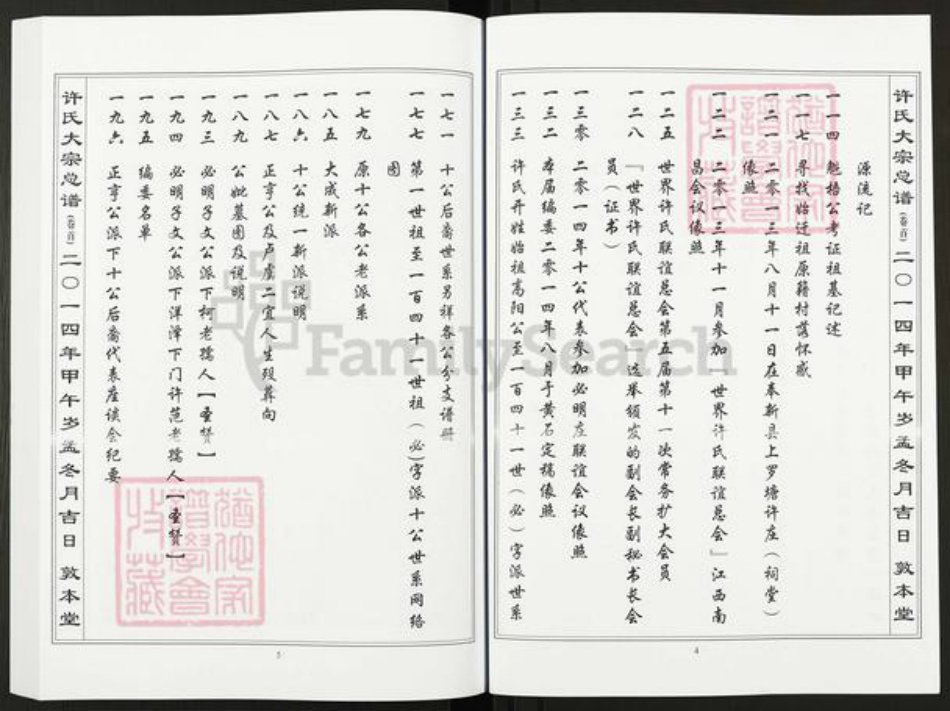 许氏大宗总谱(卷首)二〇一四年甲午岁孟冬月吉日 敦本堂
源流记
一一四 魁梧公考证祖墓记述
一一七 寻找始迁祖原籍村落怀感
一二一 二零一三年八月十一日在奉新县上罗塘许庄(祠堂)
像照
一二二 二零一三年十一月参加「世界许氏联谊总会」江西南
昌会议像照
一二五 世界许氏联谊总会第五届第十一次常务扩大会员
一二八 「世界许氏联谊总会」选举颁发的副会长副秘书长会
员(证书)
一三零 二零一四年十公代表参加必明庄联谊会议像照
一三二 本届编委二零一四年八月于黄石定稿像照
一三三 许氏开姓始祖高阳公至一百四十一世(必)字派世系
4
一七一 十公后裔世系另祥各公分支谱册
一七七 第一世祖至一百四十一世祖(必)字派十公世系网络
图
一七九 原十公各公老派系
一八五 大成新派
一八六 十公统一新派说明
一八七 正亨公及贞虞二宜人生殁葬向
一八九 公妣墓图及说明
一九三 必明子文公派下柯老孺人【圣赞】
一九四 必明子文公派下洋潭下门许范老孺人【圣赞】
一九五 编委名单
一九六 正亨公派下十公后裔代表座谈会纪要
许氏大宗总谱(卷首)二〇一四年甲午岁孟冬月吉日 敦本堂
5
FamilySearch